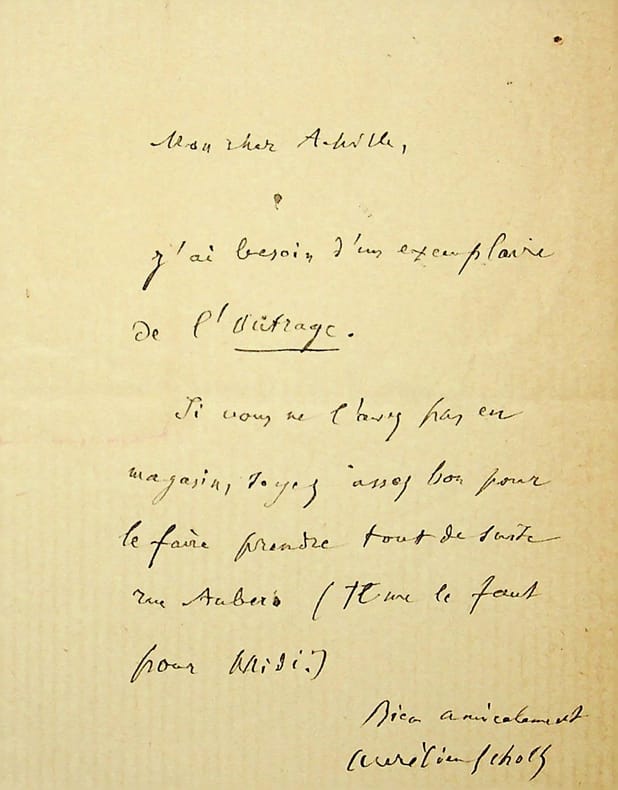 Mon cher Achille,
j'ai besoin d'un exemplaire
de l'Outrage.
Si vous ne l'avez pas en
magasin, soyez assez bon pour
le faire prendre tout de suite
rue Auber (Il me le faut
pour Midi.)
Bien amicalement
Aurélien Scholl